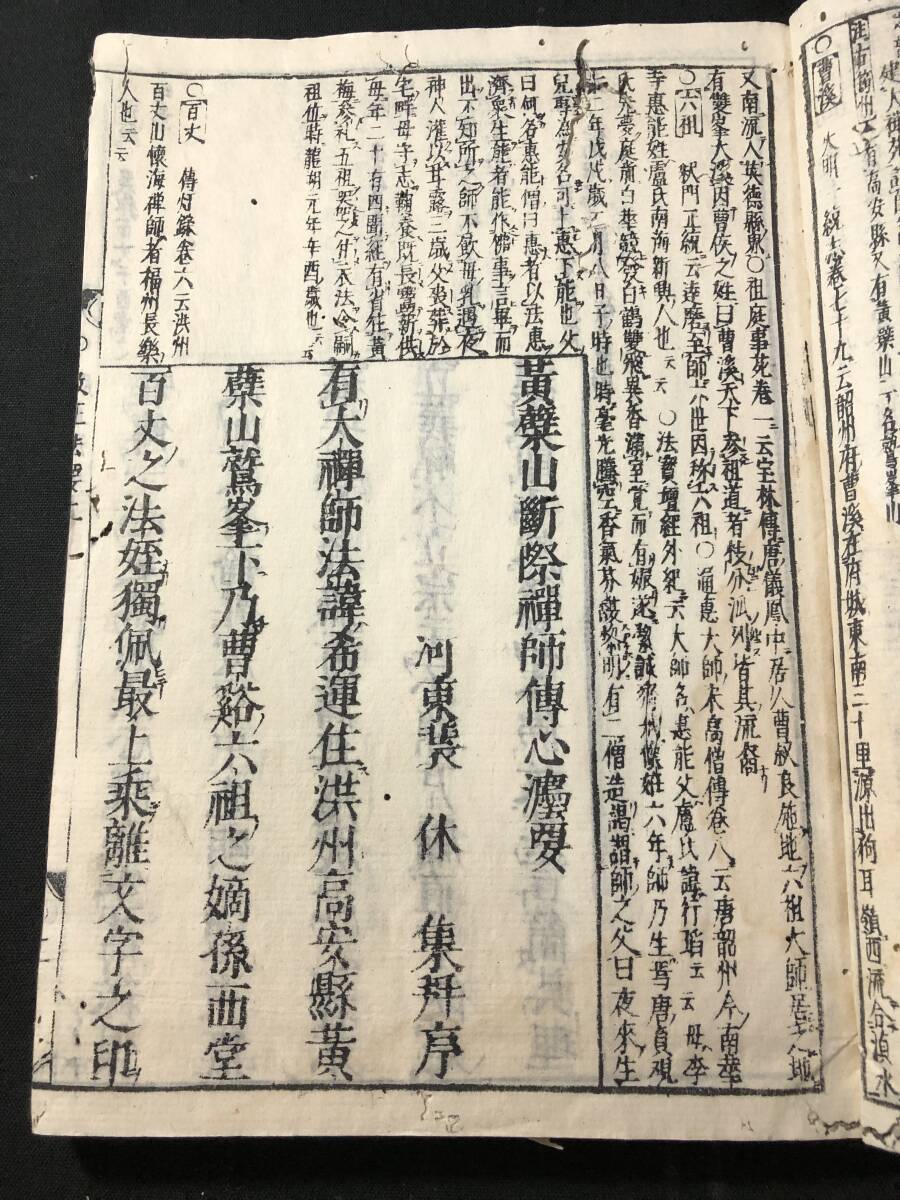 ○曹溪 大明一統志卷七十九云韶州府曹溪在府城東南三十里源出狗耳嶺西流合溱水
又南流入英德縣東○祖庭事苑卷一云宝林傳唐儀鳳中居人曹叔良施地六祖大師居之地
有雙峯大溪因曹侯之姓曰曹溪天下参祖道者枝分派列皆其流裔
○六祖 釈門正統云達磨至師六世因称六祖○通惠大師宋高僧傳卷八云唐韶州今南華
寺惠能姓盧氏南海新興人也云云○法寶壇經外紀云大師名惠能父盧氏諱行瑫云云母李
氏夢庭前白華競發白鶴雙飛異香滿室覚而有娠遂潔誠齋戒懐妊六年師乃生焉唐貞観
十二年戊戌歳二月八日子時也時毫光騰空香氣芬馥黎明有二僧造謁謂師之父曰夜来生
兒專為安名可上惠下能也父
曰何名惠能僧曰惠者以法惠
濟衆生能者能作佛事言畢而
出不知所之師不飲母乳遇夜
神人灌以甘露三歳父喪葬於
宅畔母守志鞠養既長鬻薪供
母年二十有四聞經有省往黄
梅参礼五祖器之付衣法令嗣
祖位時龍朔元年辛酉歳也云云
○百丈 傳灯録卷六云洪州
百丈山懐海禪師者福州長樂
人也云云
黃檗山斷際禪師傳心灋要
河東裴休集并序
有大禪師法諱希運住洪州高安縣黃
檗山鷲峯下乃曹谿六祖之嫡孫西堂
百丈之法姪獨佩最上乘離文字之印